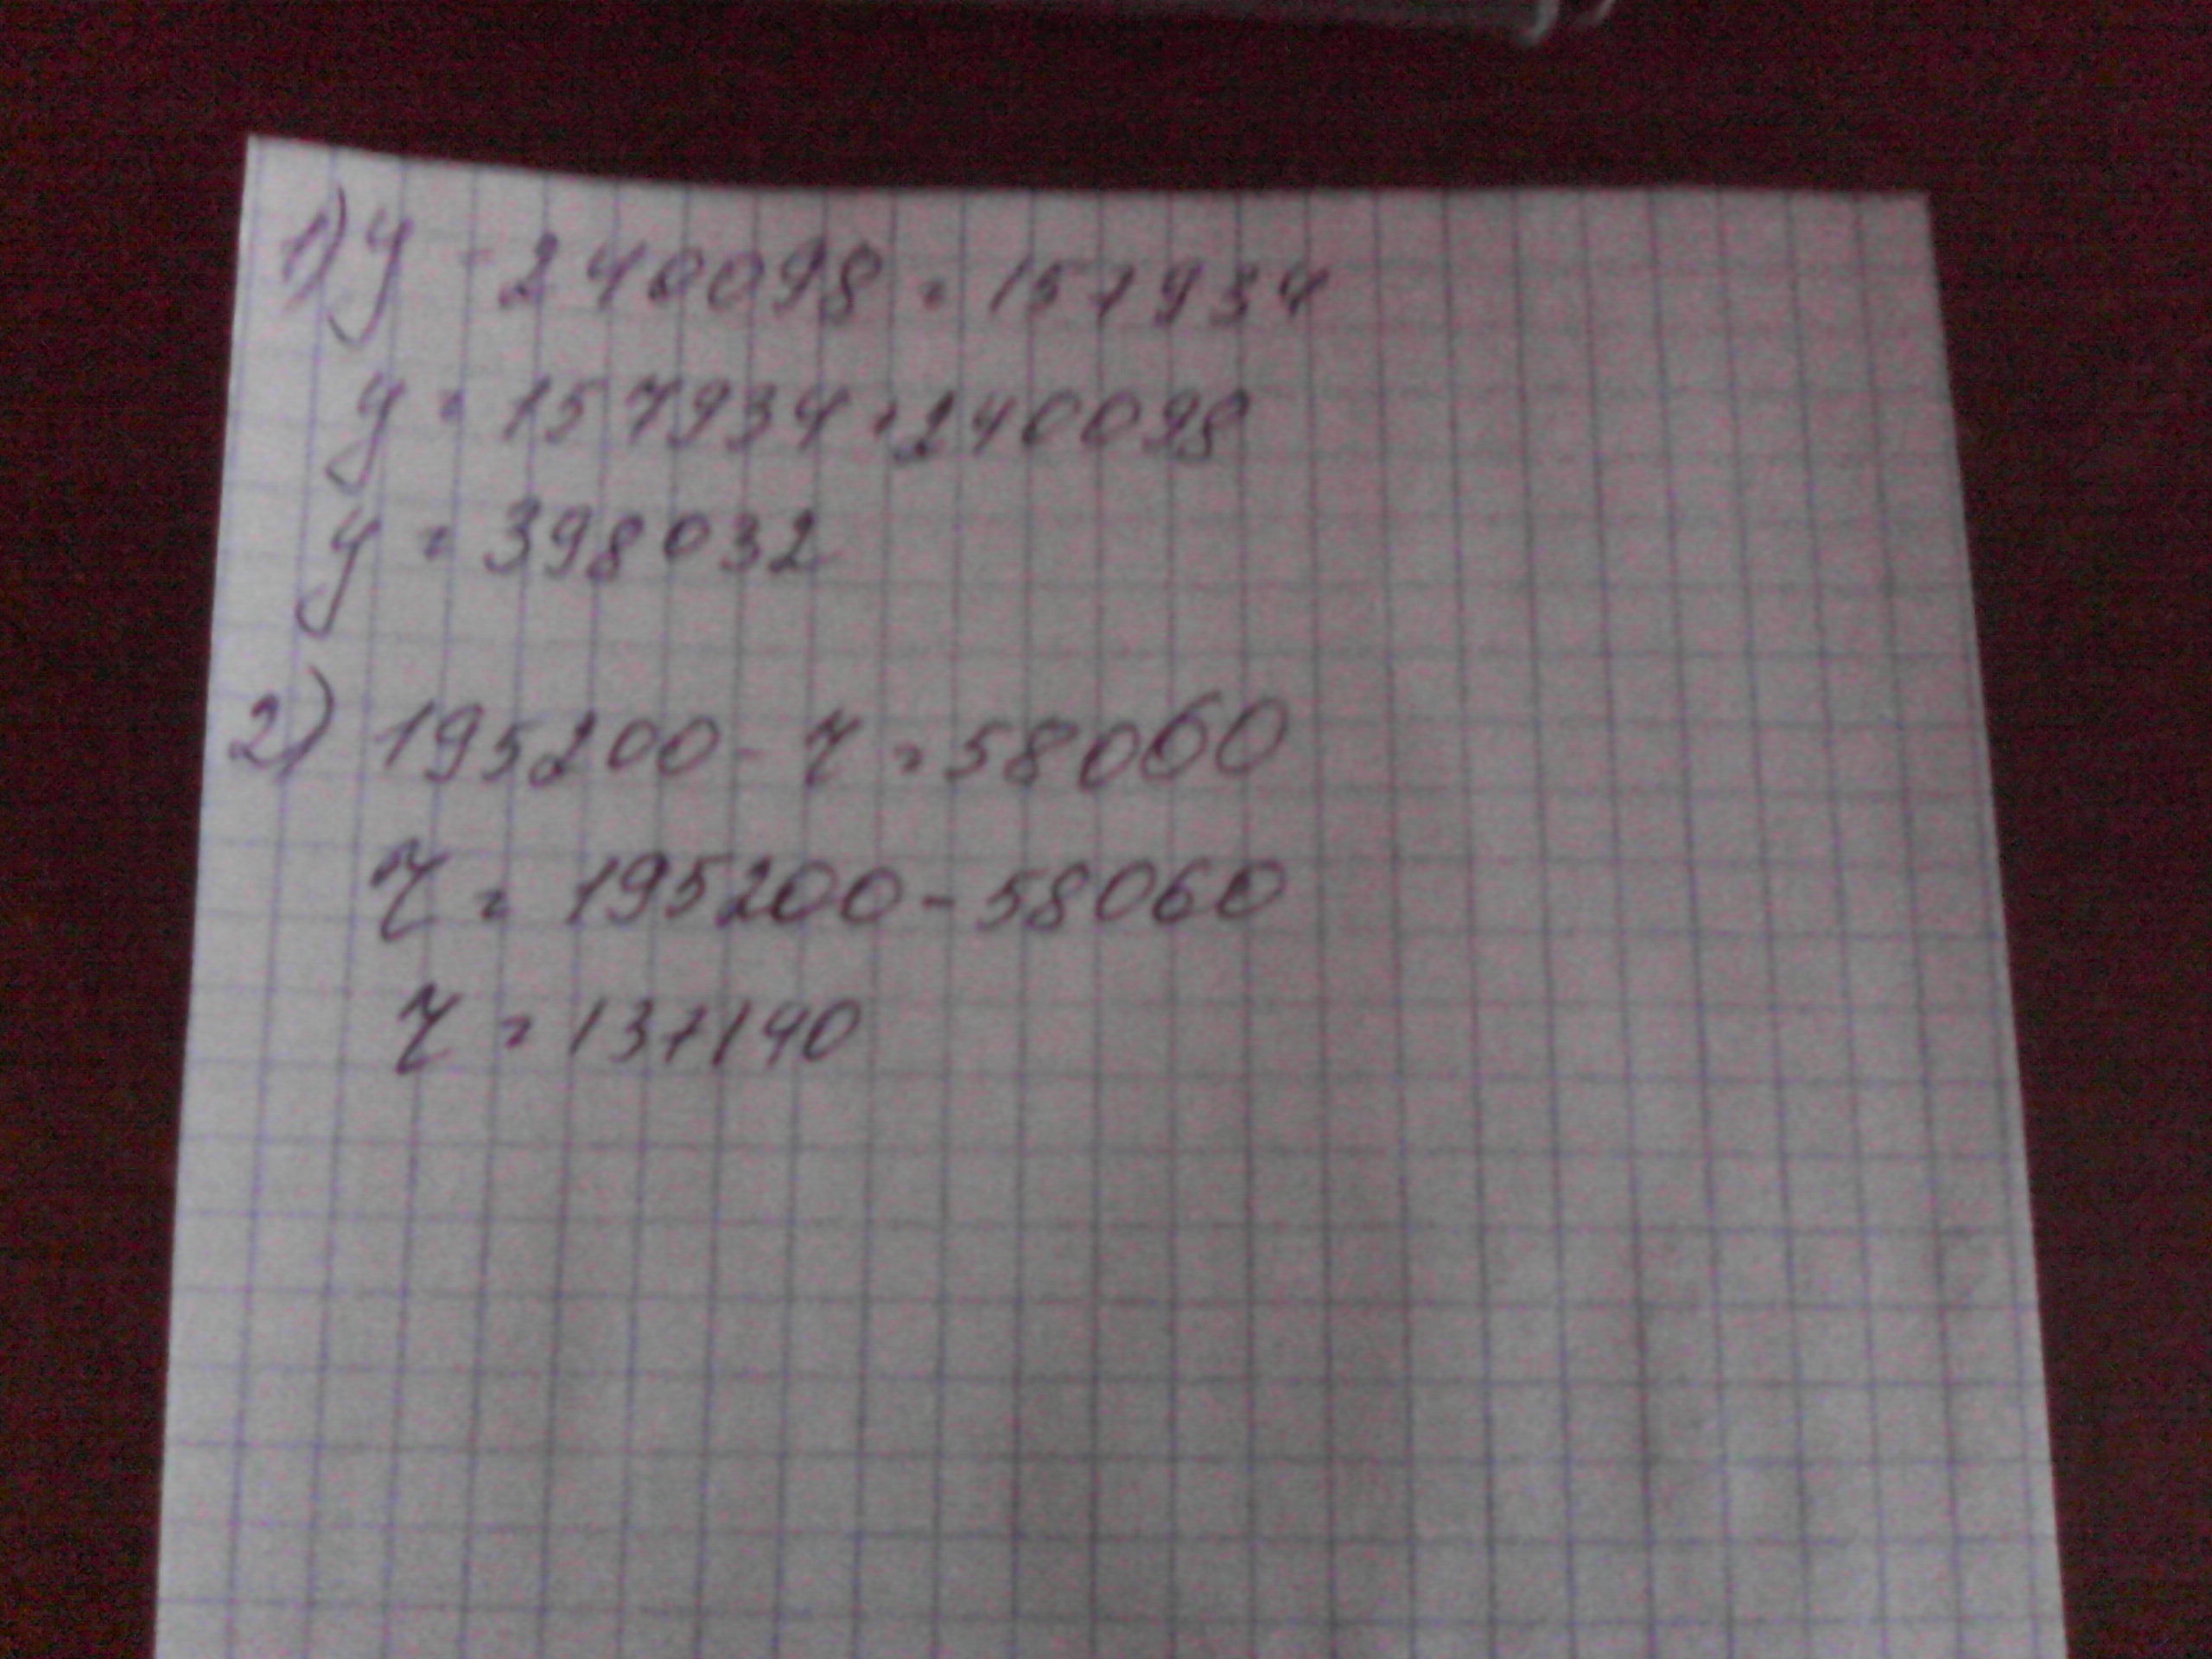 1) y - 240098 = 157934
y = 157934 + 240098
y = 398032
2) 195200 - z = 58060
z = 195200 - 58060
z = 137140